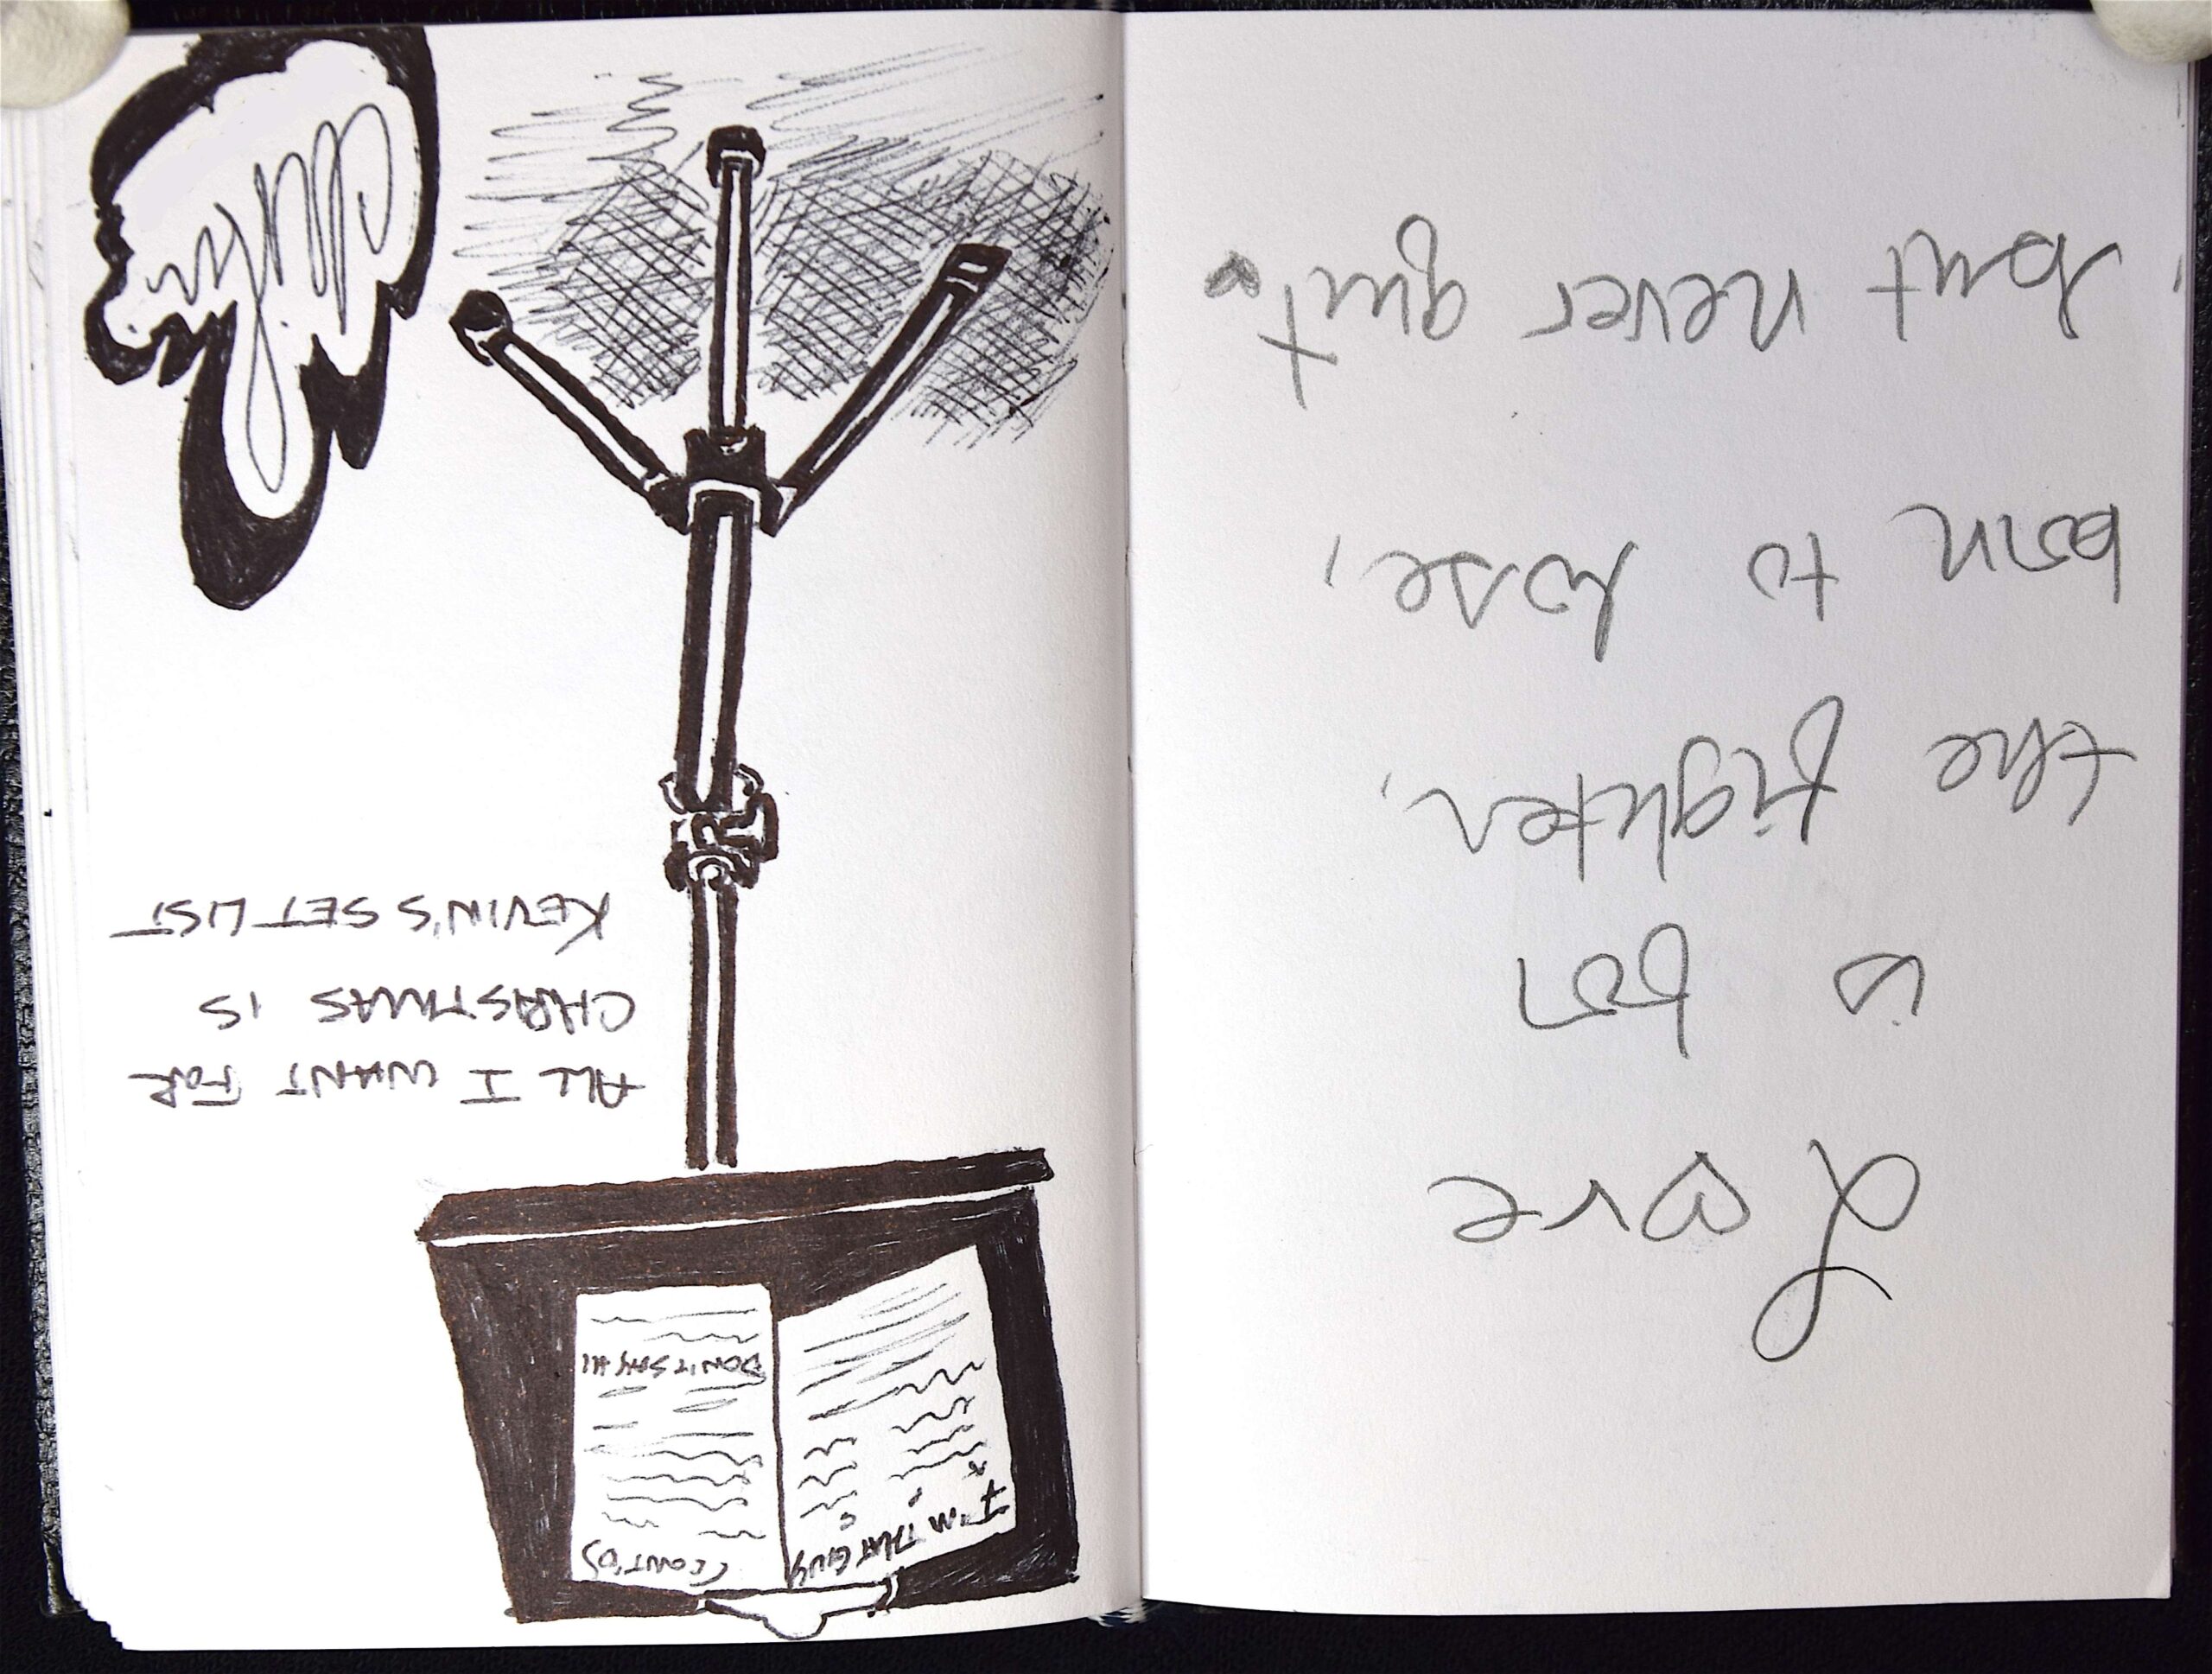 Love
is for
the fighter,
born to lose,
but never quit.
I'M THAT GUY
(CONT'D)
DON'T SAY HI
ALL I WANT FOR
CHRISTMAS IS
KEVIN'S SET LIST